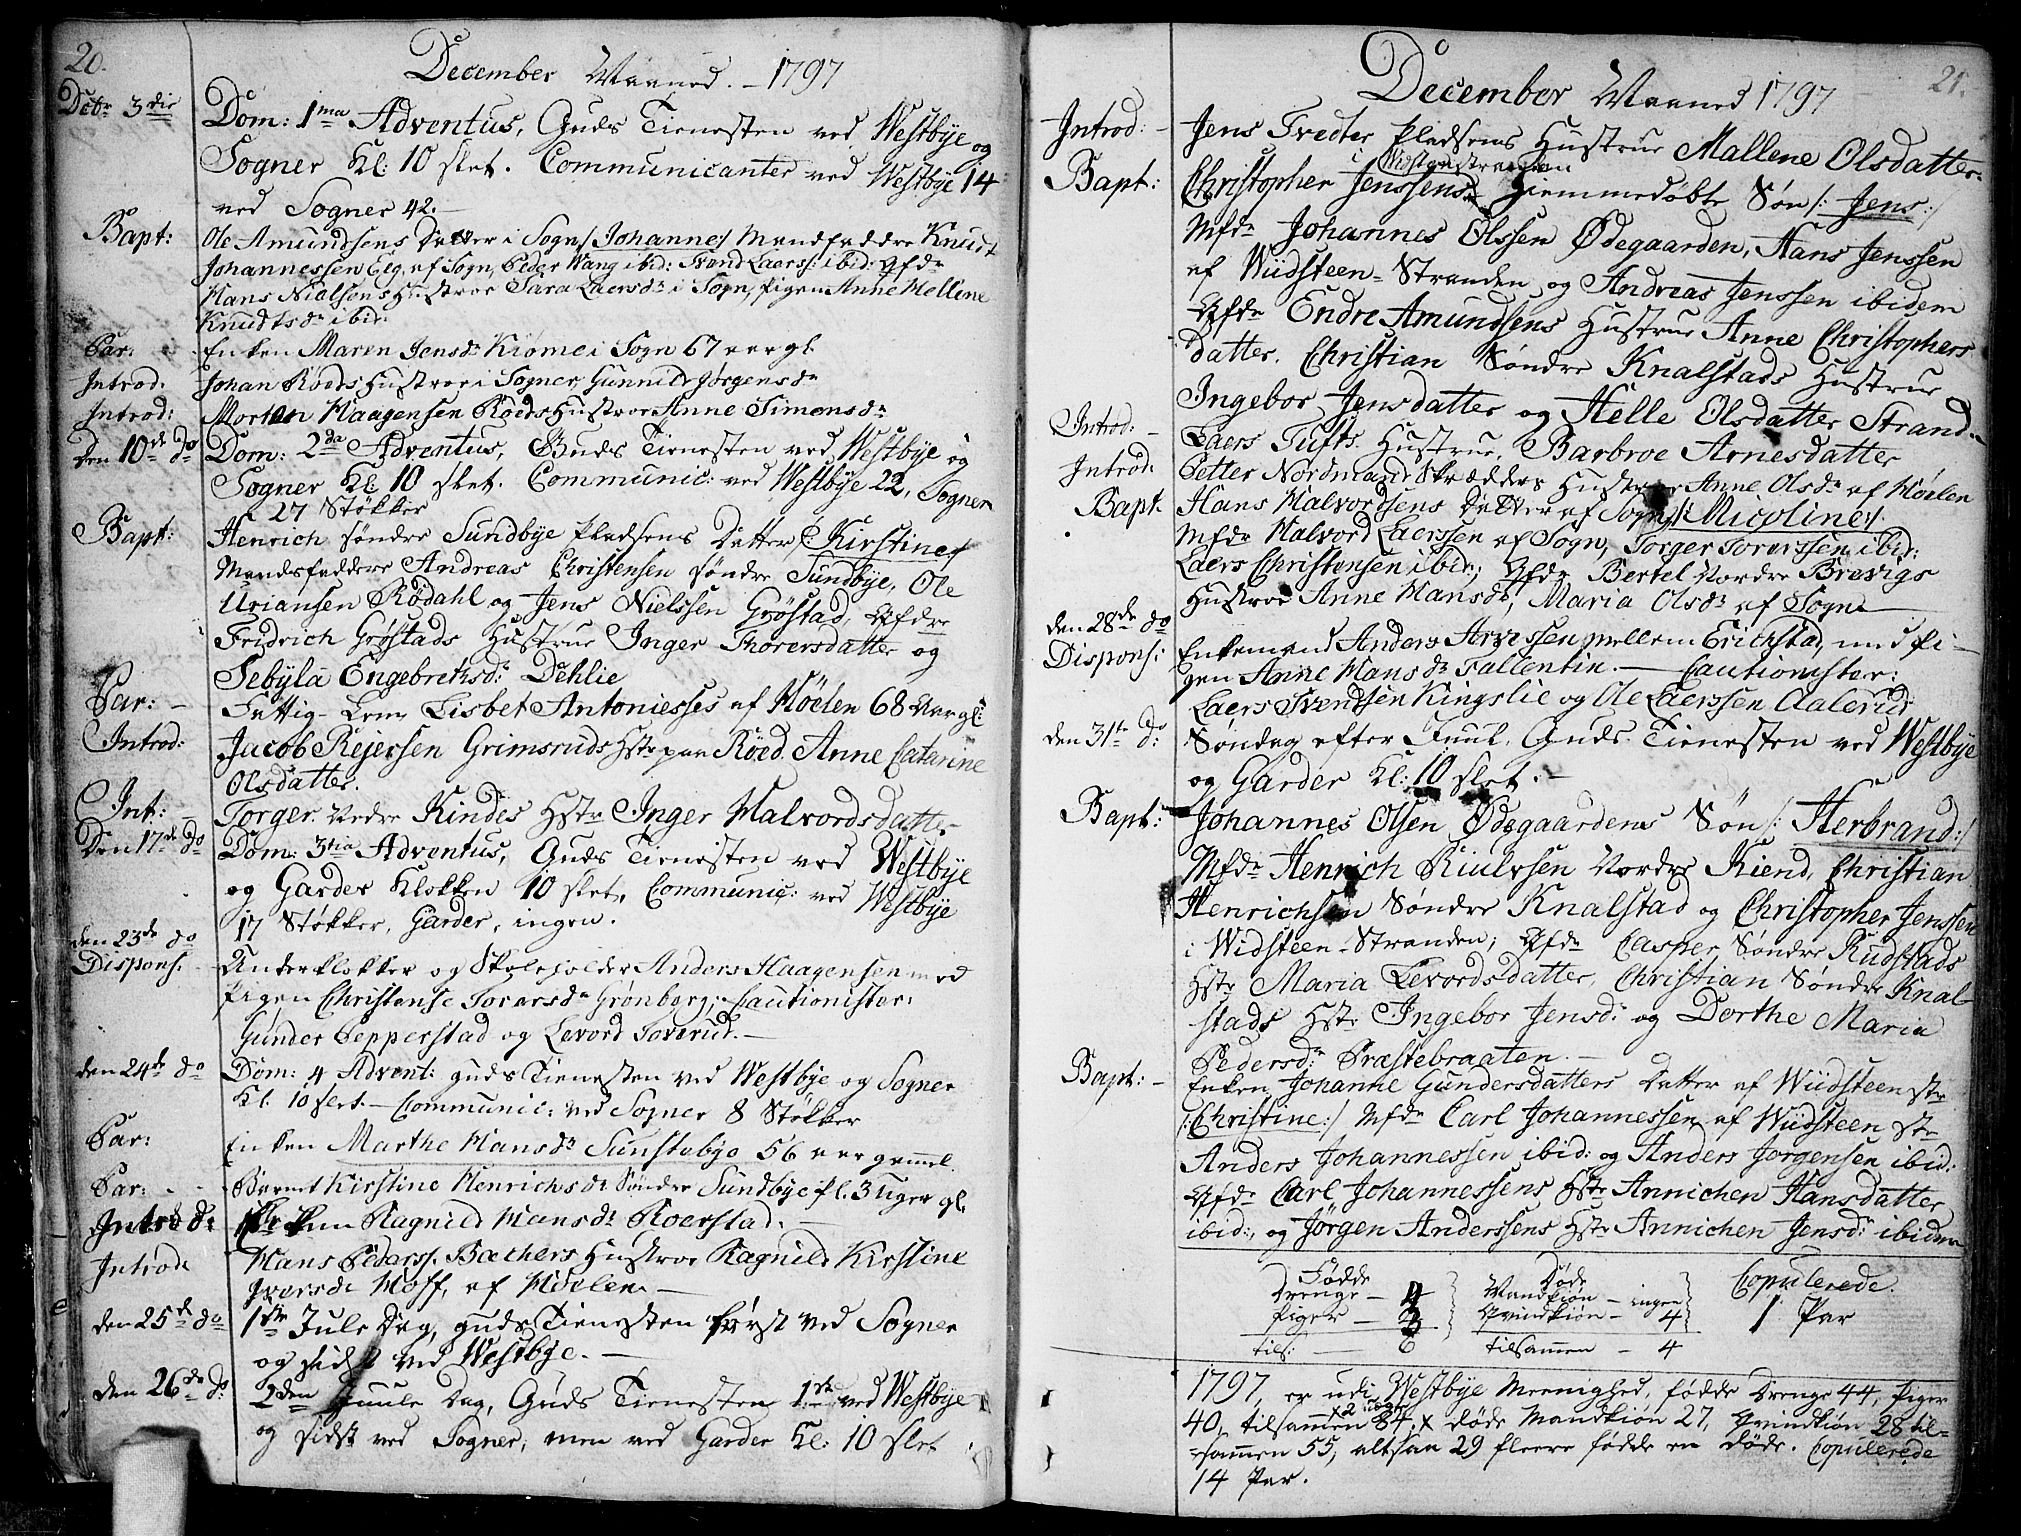 20.
December Maaned. - 1797
Dcbr 3die Dom: 1ma Adventus, Guds Tienesten ved Westbye og
Sogner Kl: 10 slet. Communicanter ved Westbye 14
ved Sogner 42.
Bapt: Ole Amundsens Datter i Sogn /: Johanne :/ Mandfaddre Knudt
Johannessen Eeg af Sogn, Peder Wang ibid: Svend Laerss: ibid: Qfdr
Hans Nielsens Hustroe Sara Laersdr i Sogn, Pigen Anne Helline
Knudtsdr ibid:
Par: Enken Maren Jensdr Kiome i Sogn 67 aar gl
Introd: Johan Röeds Hustroe i Sogner Gunnild Jørgensdr
Introd: Morten Haagensen Röeds Hustroe Anne Simensdr
Den 10de do Dom: 2da Adventus, Guds Tienesten ved Westbye og
Sogner Kl 10 slet. Communic: ved Westbye 22, Sogner
27 Støkker
Bapt: Henrich søndre Sundbye Pladsens Datter /: Kirstine :/
Mandsfaddere Andreas Christensen søndre Sundbye, Ole
Uriansen Rödahl og Jens Nielssen Grøstad, Qfdre
Fridrich Grøstads Hustrue Inger Thorersdatter og
Sebyla Engebretsdr Dehlie
Par: - Fattig-Lem Lisbet Antoniesses af Höelen 68 Aar gl:
Introd: Jacob Rejersen Grimsruds Hstr paa Röed Anne Catarine
Olsdatter.
Int: Torger Nedre Kindes Hstr Inger Halvordsdatter
Den 17de do Dom: 3tia Adventus, Guds Tienesten ved Westbye
og Garder Klokken 10 slet, Communic: ved Westbye
17 Støkker, Garder, ingen.
den 23de do
Dispons: Underklokker og Skoleholder Anders Haagensen med
Pigen Christense Torersdr Grønberg; Cautionister:
Gunder Pepperstad og Levord Toverud.
den 24de do Dom: 4 Advent: guds Tienesten ved Westbye og Sogner
Kl. 10 slet. - Communic: ved Sogner 8 Støkker
Par: Enken Marthe Hansdr Sunstebye 56 aar gammel.
Par: Barnet Kirstine Henrichsdr Søndre Sundbye fl. 3 Uger gl.
Introd: Ragnild Hansdr Roerstad.
Introd Hans Pederss. Bachers Hustroe Ragnild Kirstine
Iversdr Hoff, af Höelen
den 25de do 1ste Jule Dag, guds Tienesten først ved Sogner
og sidst ved Westbye.
den 26de do: 2den Juule Dag, Guds Tienesten 1st ved Westbye
og sidst ved Sogner, men ved Garder Kl: 10 slet
21.
December Maaned 1797
Introd: Jens Tvedter Pladsens Hustrue Mallene Olsdatter.
Widsteenstranden
Bapt: Christopher Jenssens Hiemmedøbte Søn /: Jens :/
Mfdr Johannes Olssen Ødegaarden, Hans Jenssen
af Wiidsteen-Stranden og Andreas Jenssen ibidem
Qfdr Endre Amundsens Hustrue Anne Christophers
datter. Christian Søndre Knalstads Hustrue
Ingebor Jensdatter og Helle Olsdatter Strand.
Introd: Laers Tufts Hustrue, Barbroe Arnesdatter
Introd: Petter Nordmand Skrædders Hustroe Anne Olsdr af Höelen
Bapt. Hans Halvordsens Datter af Sogn /: Nicoline :/
Mfdr Halvord Laerssen af Sogn, Torger Torerssen ibid:
Laers Christensen ibid:, Qfdr Bertel Nordre Brevigs
Hustroe Anne Hansdr, Maria Olsdr af Sogn
den 28de do
Dispons: Enkemand Anders Arvessen mellem Erichstad, med Pi-
gen Anne Hansdr Fallentin. - Cautionister:
Laers Svendsen Kingslie og Ole Laerssen Aalerud
den 31te do: Søndag efter Juul, Guds Tienesten ved Westbye
og Garder Kl: 10 slet.
Bapt: Johannes Olsen Ødegaardens Søn /: Herbrand :/
Mfdr Henrich Riulvsen Nordre Kiend, Christian
Henrichsen Søndre Knalstad og Christopher Jenssen
i Widsteen-Stranden; Qfdr Casper Søndre Rudstads
Hstr Maria Levordsdatter, Christian Søndre Knal-
stads Hstr Ingebor Jensd: og Dorthe Maria
Pedersdr Præstebraaten.
Bapt: - Enken Johanne Gundersdatters Datter af Wiidsteen str
/: Christine :/ Mfdr Carl Johannessen af Wiidsteen str
Anders Johannessen ibid: og Anders Jørgensen ibid:
Qfdr Carl Johannessens Hstr Annichen Hansdatter
ibid:, og Jørgen Anderssens Hstr Annichen Jensd: ibidem
Fødde Døde Copulerede
Drenge - Mandkiøn - ingen
Piger - Qvindkiøn - 4 1 Par
tils: - 6 tilsammen - 4
1797, er udi Westbye Meenighed, fødde Drenge 44, Piger
40, tilsammen 84, døde Mandkiøn 27, Qvindkiøn 28 til-
sammen 55, altsaa 29 fleere fødde en døde. Copulerede
14 Par.